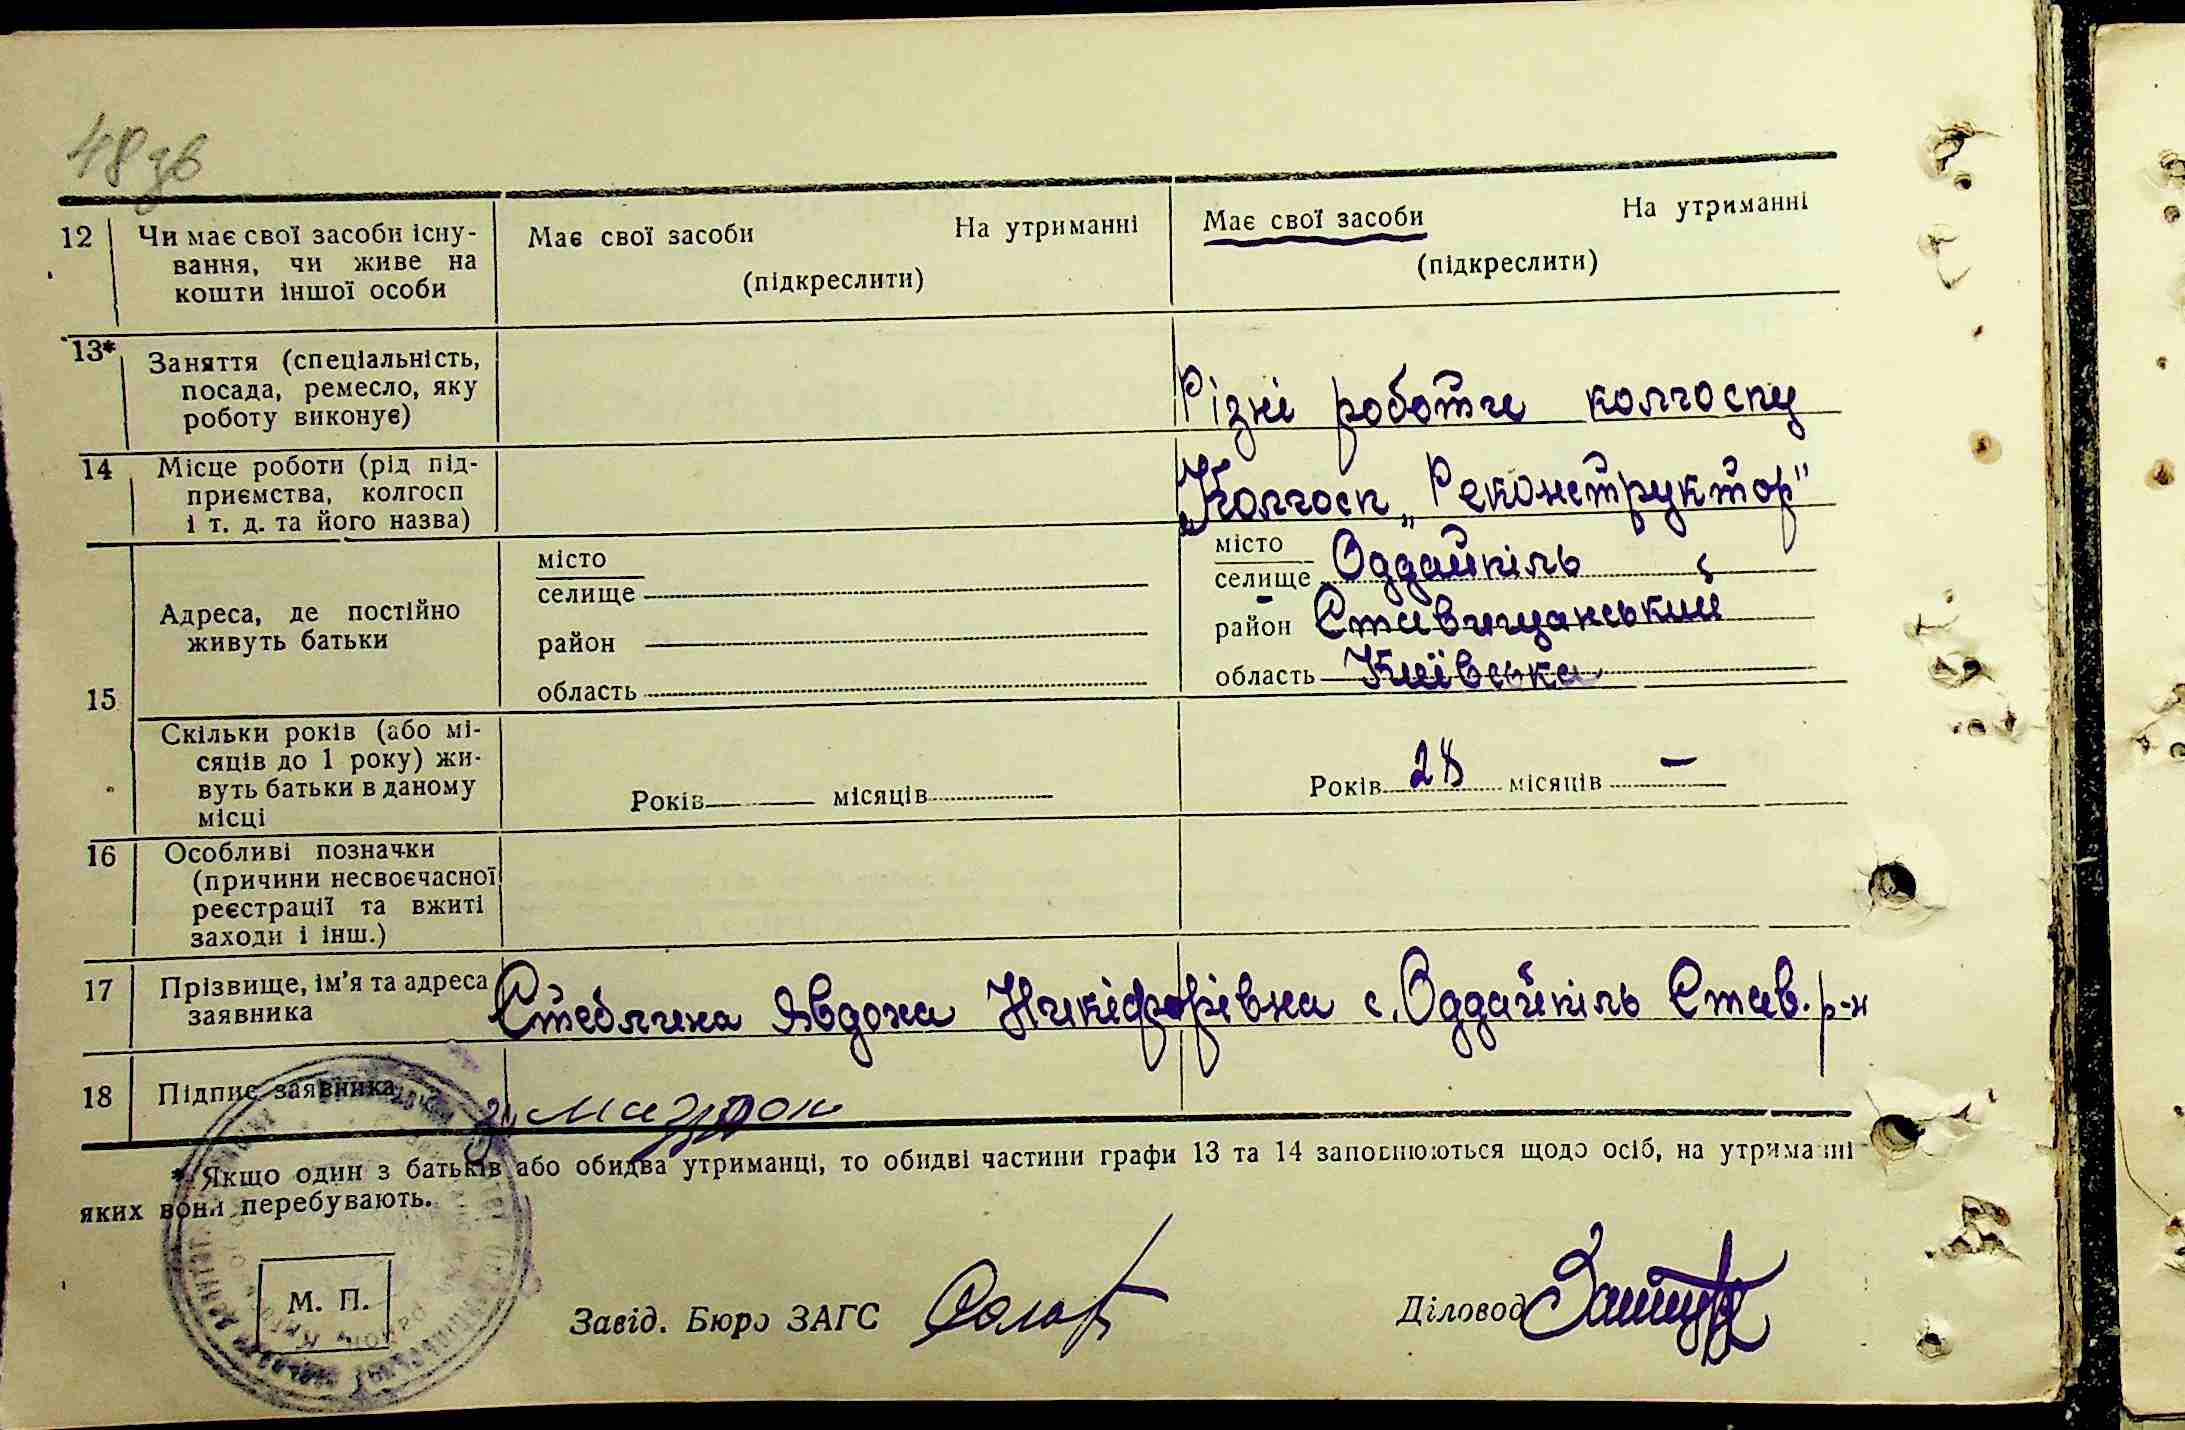 48 зв
12 Чи має свої засоби існу- Має свої засоби На утриманні Має свої засоби На утриманні
вання, чи живе на (підкреслити) (підкреслити)
кошти іншої особи
13* Заняття (спеціальність,
посада, ремесло, яку Різні роботи колгоспу
роботу виконує)
14 Місце роботи (рід під- Колгосп „Реконструктор"
приємства, колгосп
і т. д. та його назва)
15 Адреса, де постійно
живуть батьки
місто
селище
район
область
місто
селище Оддайпіль
район Ставищанський
область Київська
Скільки років (або мі-
сяців до 1 року) жи-
вуть батьки в даному
місці
Років місяців Років 28 місяців —
16 Особливі позначки
(причини несвоєчасної
реєстрації та вжиті
заходи і інш.)
17 Прізвище, ім'я та адреса Стеблина Явдоха Никіфорівна с. Оддайпіль Став. р-н
заявника
18 Підпис заявника
* Якщо один з батьків або обидва утриманці, то обидві частини графи 13 та 14 заповнюються щодо осіб, на утриманні
яких вони перебувають.
М. П.
Завід. Бюро ЗАГС Діловод